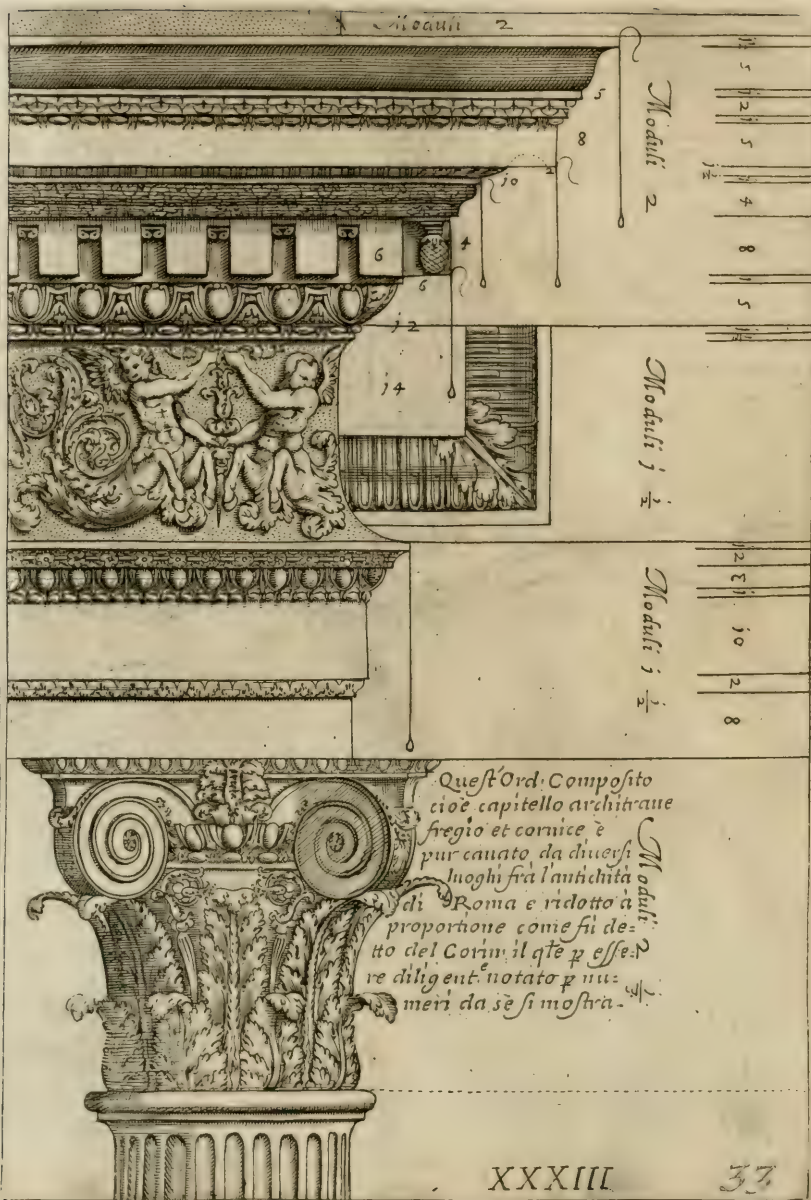 Moduli 2
5
8
Moduli 2
j0
2
6
4
6
j2
j4
5
j
2
j
5
4
8
j
5
Moduli j ½
Moduli j ½
2
3
j
j0
2
8
Quest'Ord: Composito
cioè capitello architraue
fregio et cornice è
pur cauato da diuersi
luoghi frà l'antichità
di Roma e ridotto à
proportione come fù de=
tto del Corin: il qle p esse=
re diligent.e notato p nu=
meri da sè si mostra.
Moduli 2 ½
XXXIII
33